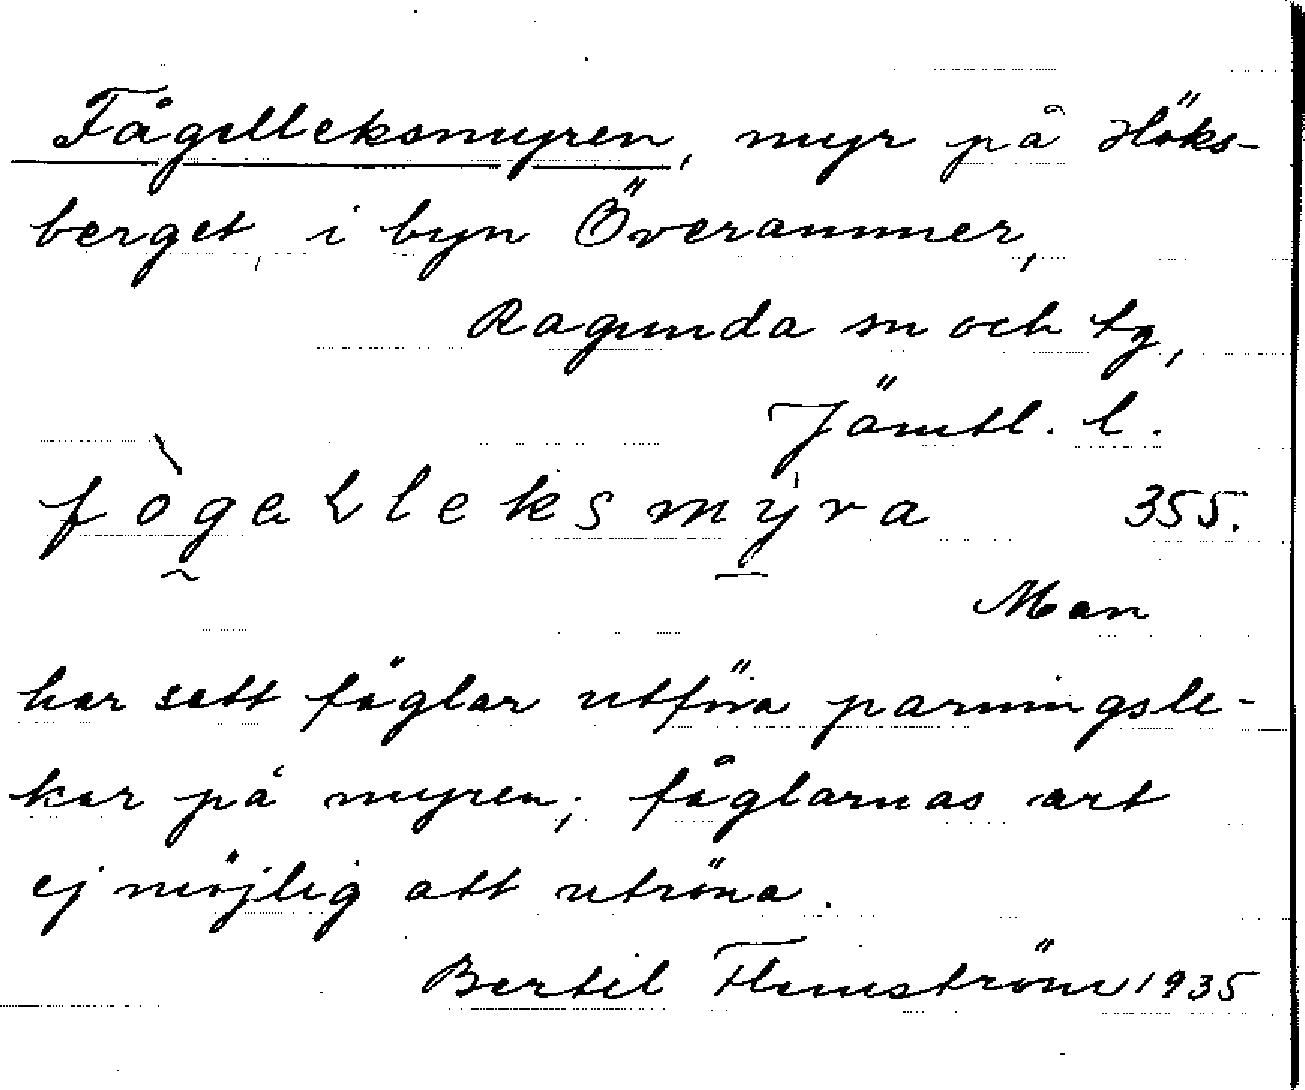 Fågelleksmyren, myr på Höks-
berget, i byn Överammer,
Ragunda sn och tg,
Jämtl. l.
fògaɫleksmyra 355.
Man
har sett fåglar utföra parningsle-
kar på myren; fåglarnas art
ej möjlig att utröna.
Bertil Flemström 1935